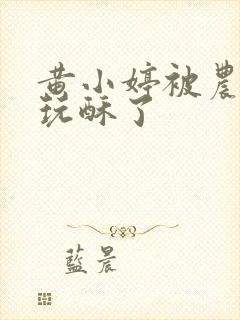 黄小婷被農
玩酥了
藍晨